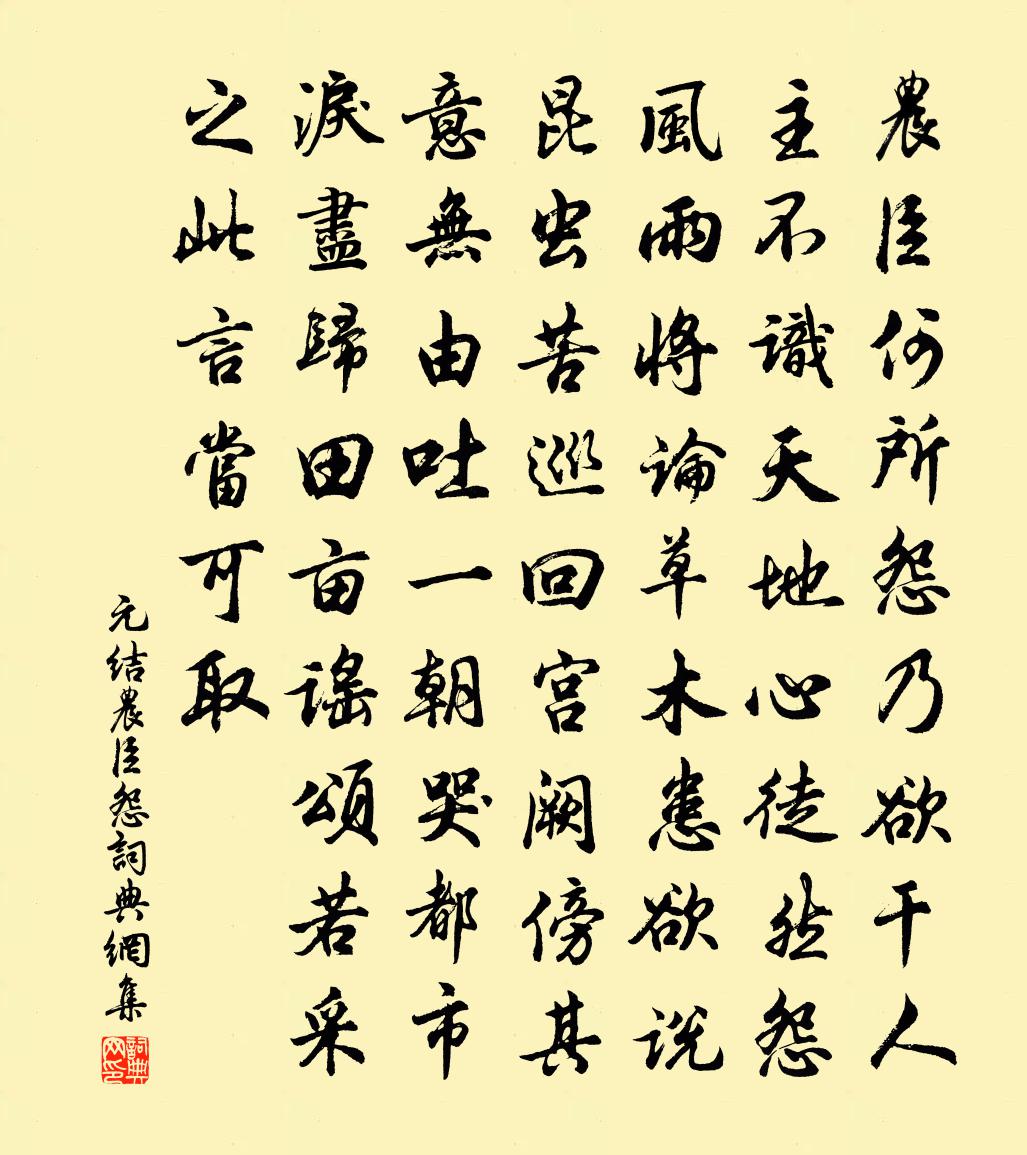 農臣何所怨乃欲干人
主不識天地心徒然怨
風雨將論草木患欲説
昆虫苦巡回宮闕傍其
意無由吐一朝哭都市
淚盡歸田亩謠頌若采
之此言當可取
元结農臣怨詞典網集
詞典网印